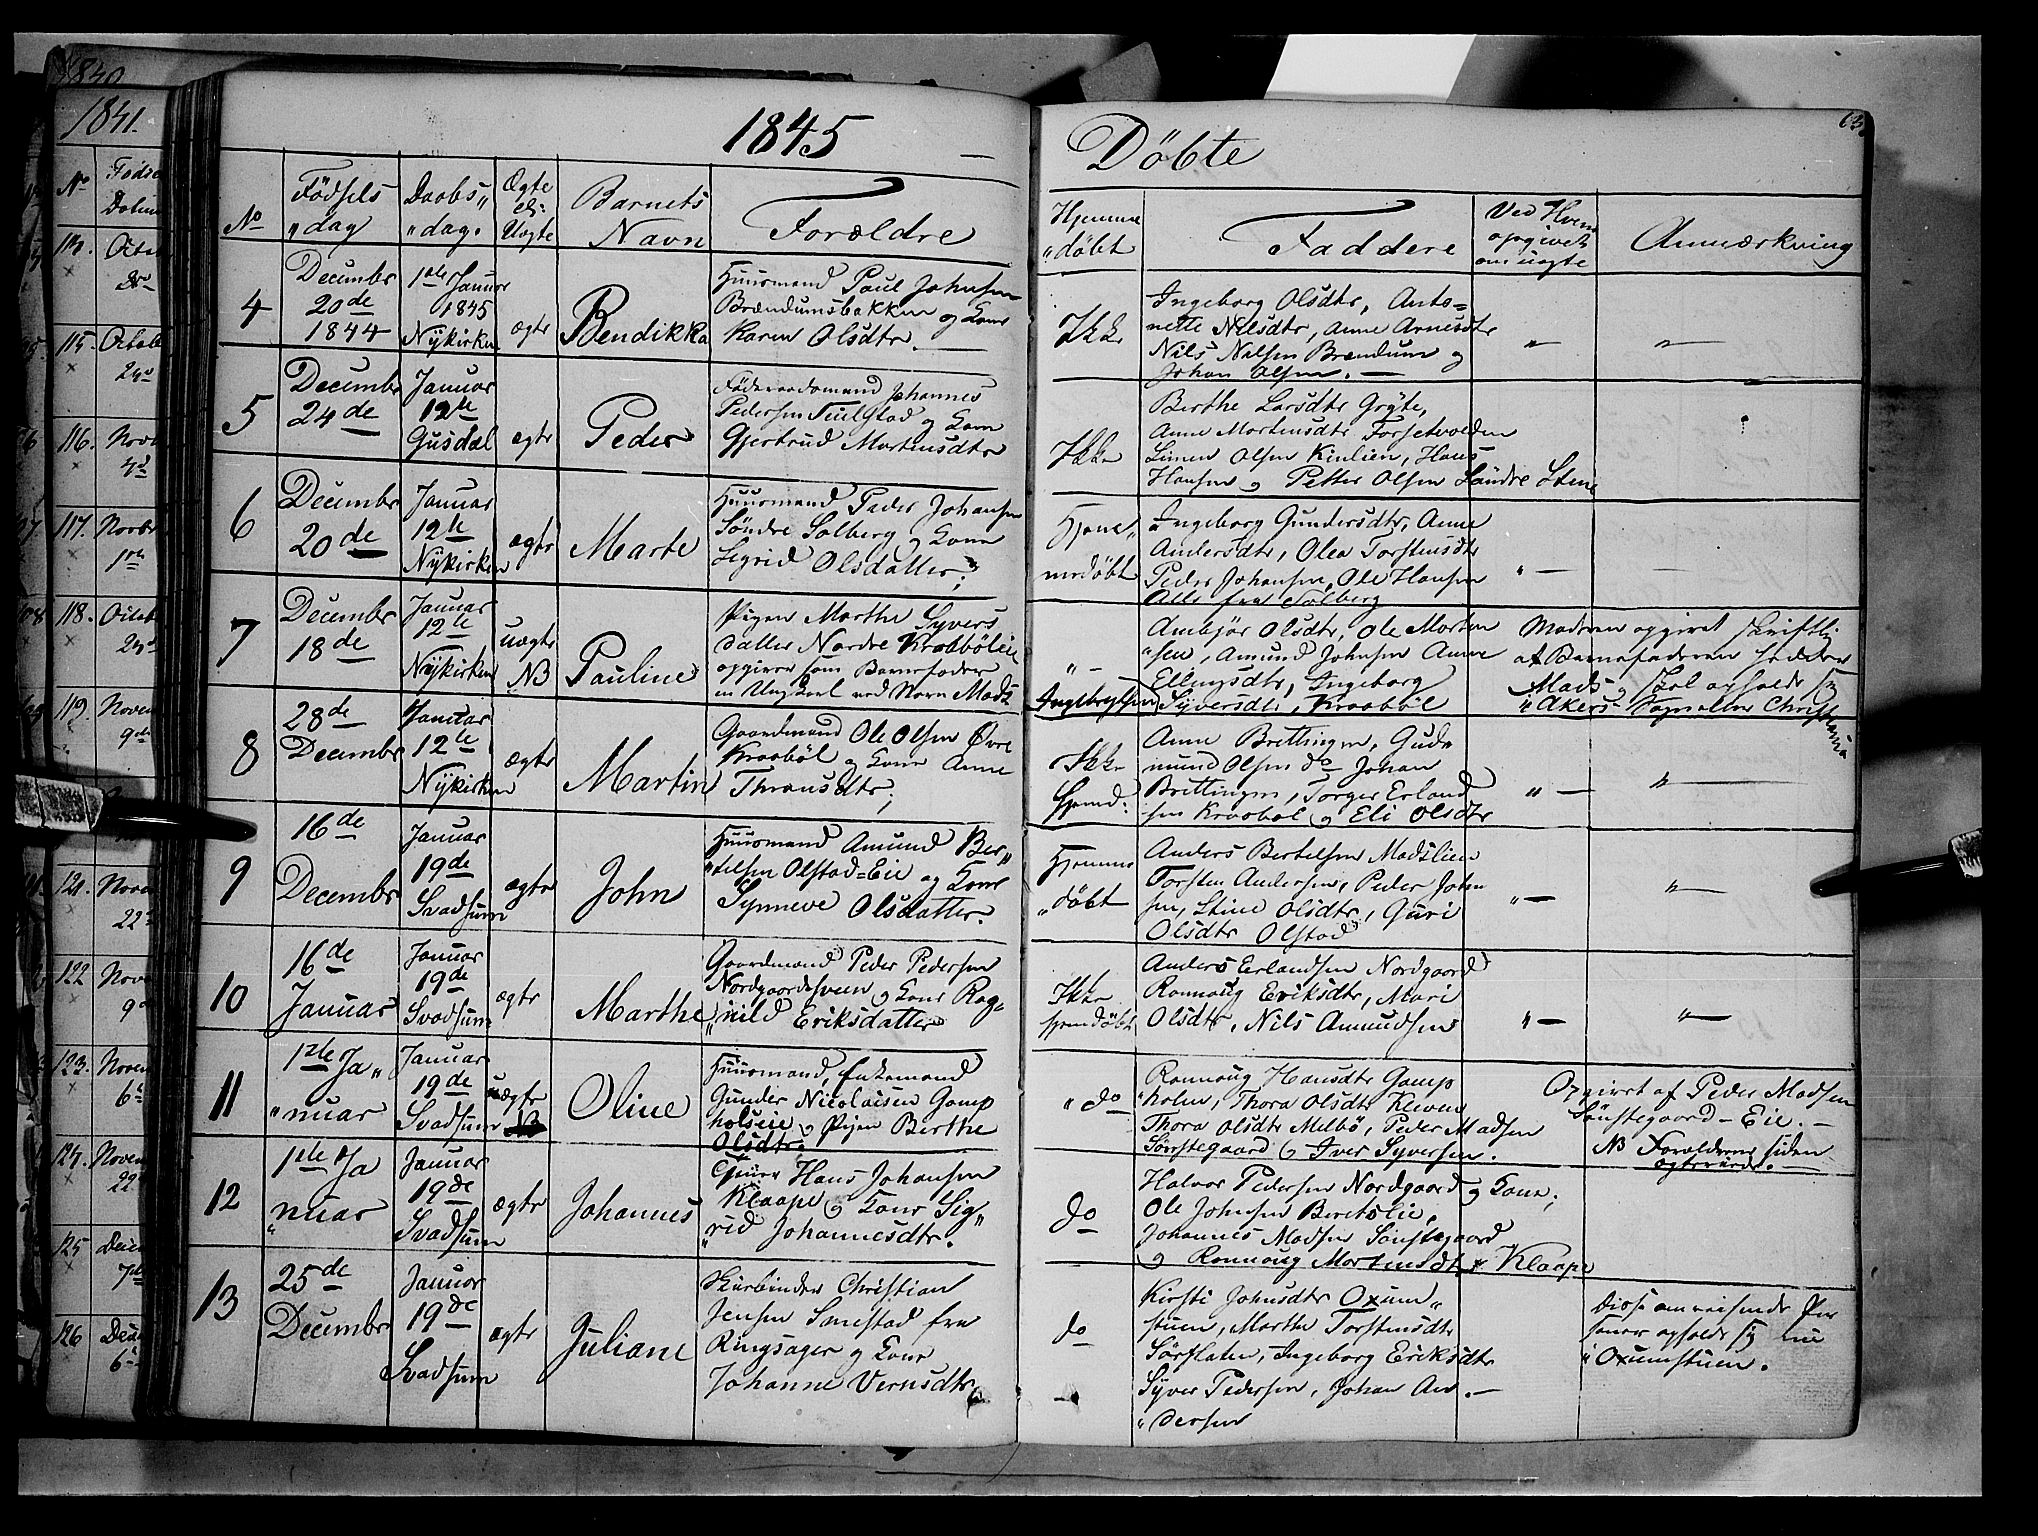 1840
1841.
1845 — Döbte
63
No
Födsels
„dag
Daabs„
„dag.
Ægte
el:
Uægte
Barnets
Navn
Forældre
Hjemme
„döbt
Faddere
Ved Hvem
opgivet
om uægte
Anmærkning
4
Decembr
20de
1844
1ste Januar
1845
Nykirken
ægte
Bendikka
Huusmand Paul Johnsen
Brændumsbakken og Kone
Karen Olsdtr. —
Ikke
Ingeborg Olsdtr, Anto=
nette Nilsdtr, Anne Arnesdtr
Nils Nilsen Brændum og
Johan Olsen. —
„
„—
5
Decembr
24de
Januar
12te
Gusdal
ægte
Peder
Föderaadsmand Johannes
Pedersen og Kone
Gjertrud Mortensdtr
Ikke
Berthe Larsdtr Gryte,
Anne Mortensdtr Forsetvolden
Simen Olsen Kinlien, Hans
Hansen og Petter Olsen Söndre Stene
6
Decembr
20de
Januar
12te
Nykirken
ægte
Marte
Huusmand Peder Johansen
Söndre Solberg og Kone
Sigrid Olsdatter;
Hjem„
medöbt
Ingeborg Gundersdtr, Anne
Andersdtr, Olea Torstensdtr
Peder Johansen, Ole Hansen
Alle fra Solberg
„ —
—
7
Decembr
18de
Januar
12te
Nykirken
uægte
NB
Pauline
Pigen Marthe Syvers
datter Nordre Kraaböleie
opgiver som Barnefader
en Ungkarl ved Navn Mads
„ -
Ingebrigtsen
Ambjör Olsdtr, Ole Morten
„sen, Amund Johnsen Anne
Ellingsdtr, Ingeborg
Syversdtr, Kraaböl
Moderen opgivet skriftlig
at Barnefaderen hedder
Mads og skal opholde sig
i Akers Sogn eller Christiania
8
28de
Decembr
Januar
12te
Nykirken
ægte
Martin
Gaardmand Ole Olsen Övre
Kraaböl og Kone Anne
Thronsdtr;
Ikke
hjemd:
Anne Brettingen, Gud„
mund Olsen do Johan
Brettingen, Torger Erland
sen Kraaböl og Eli Olsdtr
„ —
„—
9
16de
Decembr
Januar
19de
Svadsum
ægte
John
Huusmand Amund Ber„
„telsen Olstad=Eie og Kone
Synneve Olsdatter.
Hjemme
„döbt
Anders Bertelsen Madslien
Torsten Andersen, Peder John
sen, Stine Olsdtr, Guri
Olsdtr Olstad
„ —
„—
10
16de
Januar
Januar
19de
Svadsum
ægte
Marthe
Gaardmand Peder Pedersen
Nordgaardssveen og Kone Rag„
„nild Eriksdatter
Ikke
hjemdöbt
Anders Erlandsen Nordgaard
Ronnoug Eriksdtr, Mari
Olsdtr, Nils Amundsen
„ —
„—
11
1ste Ja„
„nuar
Januar
19de
Svadsum
uægte
NB
Oline
Huusmand, Enkemand
Gunder Nicolaisen Gamp
holseie og Pigen Berthe
Olsdtr.
„ do
Ronnoug Hansdtr Gamp
„holen, Thora Olsdtr Kleven
Thora Olsdtr Melbö, Peder Madsen
Sönstegaard og Iver Syversen.
Opgivet af Peder Madsen
Sönstegaard-Eie. —
NB Forældrene siden
ægteviede. —
12
1ste Ja
„nuar
Januar
19de
Svadsum
ægte
Johannes
Hans Johansen
Klaape og Kone Sig„
„rid Johannesdtr.
do
Halvor Pedersen Nordgaard og Kone;
Ole Johnsen Beretslie,
Johannes Madsen Sönstegaard
og Ronnoug Mortensdtr Klaape
13
25de
Decembr
Januar
19de
Svadsum
ægte
Juliane
Skiærbinder Christian
Jensen Smestad fra
Ringsager og Kone
Johanne Vernsdtr
do
Kirsti Johnsdtr Oxum„
stuen, Marthe Torstensdtr
Sörflaten, Ingeborg Eriksdtr
Syver Pedersen, Johan An. —
„dersen
Disse omreisende Per
soner opholde sig nu
i Oxumstuen.
No
Födse
Datum
115.
Octob
24d
116.
Nove
4d
117.
Novbr
1ste
118.
Octob
24d
119.
Novem
9de
121.
Novem
22d
122
Nove
9d
123.
Novem
6t
124.
Novem
22d
125
Dece
7de
126
Dece
6t